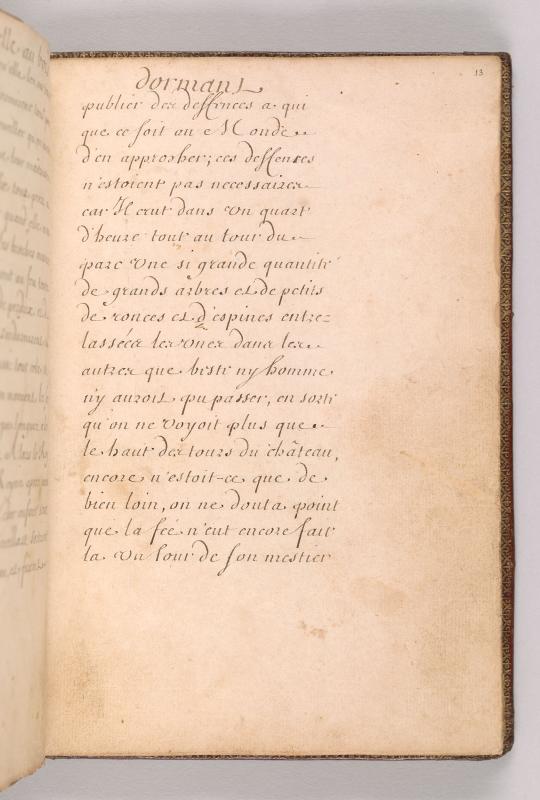 13
dormant
publier des deffences a qui
que ce soit au Monde
d'en approcher; ces deffences
n'estoient pas necessaires
car Il crut dans un quart
d'heure tout au tour du
parc une si grande quantité
de grands arbres et de petits
de ronces et d'espines entre=
lassées les unes dans les
autres que beste ny homme
n'y auroit pu passer, en sorte
qu'on ne voyoit plus que
le haut des tours du château,
encore n'estoit-ce que de
bien loin, on ne douta point
que la fée n'eut encore fait
la un tour de son mestier